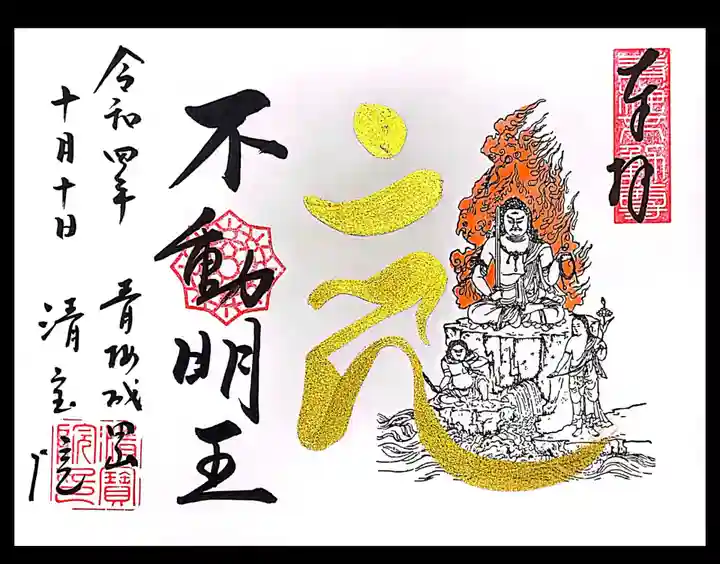 奉拝
不動明王
令和四年
十月十日
青梅成田山
清宝院
清寶院印